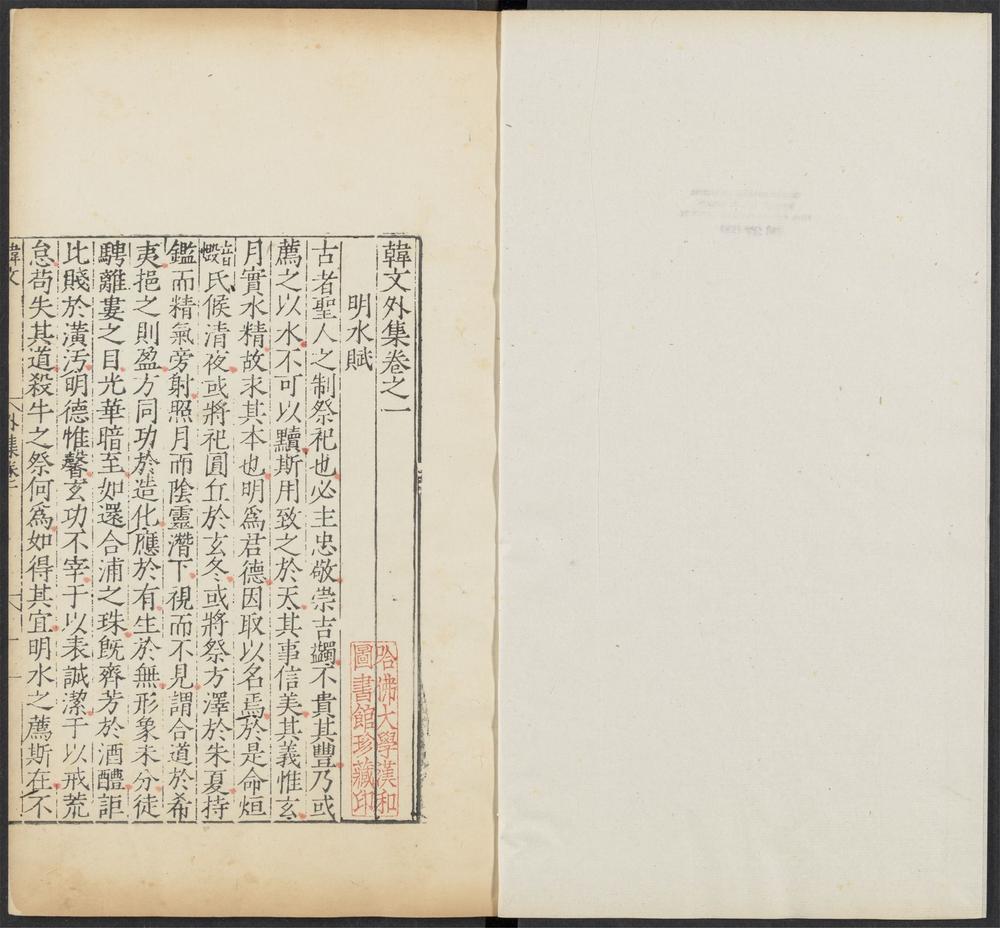 韓文外集卷之一
明水賦
古者聖人之制祭祀也必主忠敬崇吉蠲不貴其豐乃或
薦之以水不可以黷斯用致之於天其事信美其義惟玄
月實水精故求其本也明爲君德因取以名焉於是命烜
音燬氏候清夜或將祀圓丘於玄冬或將祭方澤於朱夏持
鑑而精氣旁射照月而陰靈潛下視而不見謂合道於希
夷挹之則盈方同功於造化應於有生於無形象未分徒
騁離婁之目光華暗至如還合浦之珠既齊芳於酒醴詎
比賤於潢汚明德惟馨玄功不宰于以表誠潔于以戒荒
怠苟失其道殺牛之祭何爲如得其宜明水之薦斯在不
韓文
外集卷一
哈佛大學漢和
圖書館珍藏印